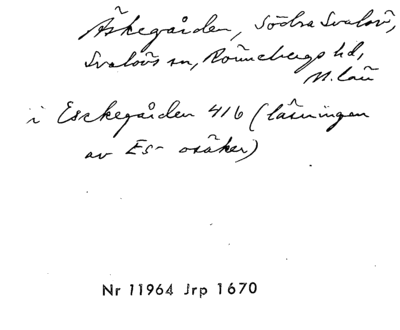 Äskegården, Södra Svalöv,
Svalövs sn, Rönnebergs hd,
M.län
i Esckegården 416 (läsningen
av Es- osäker)
Nr 11964 Jrp 1670